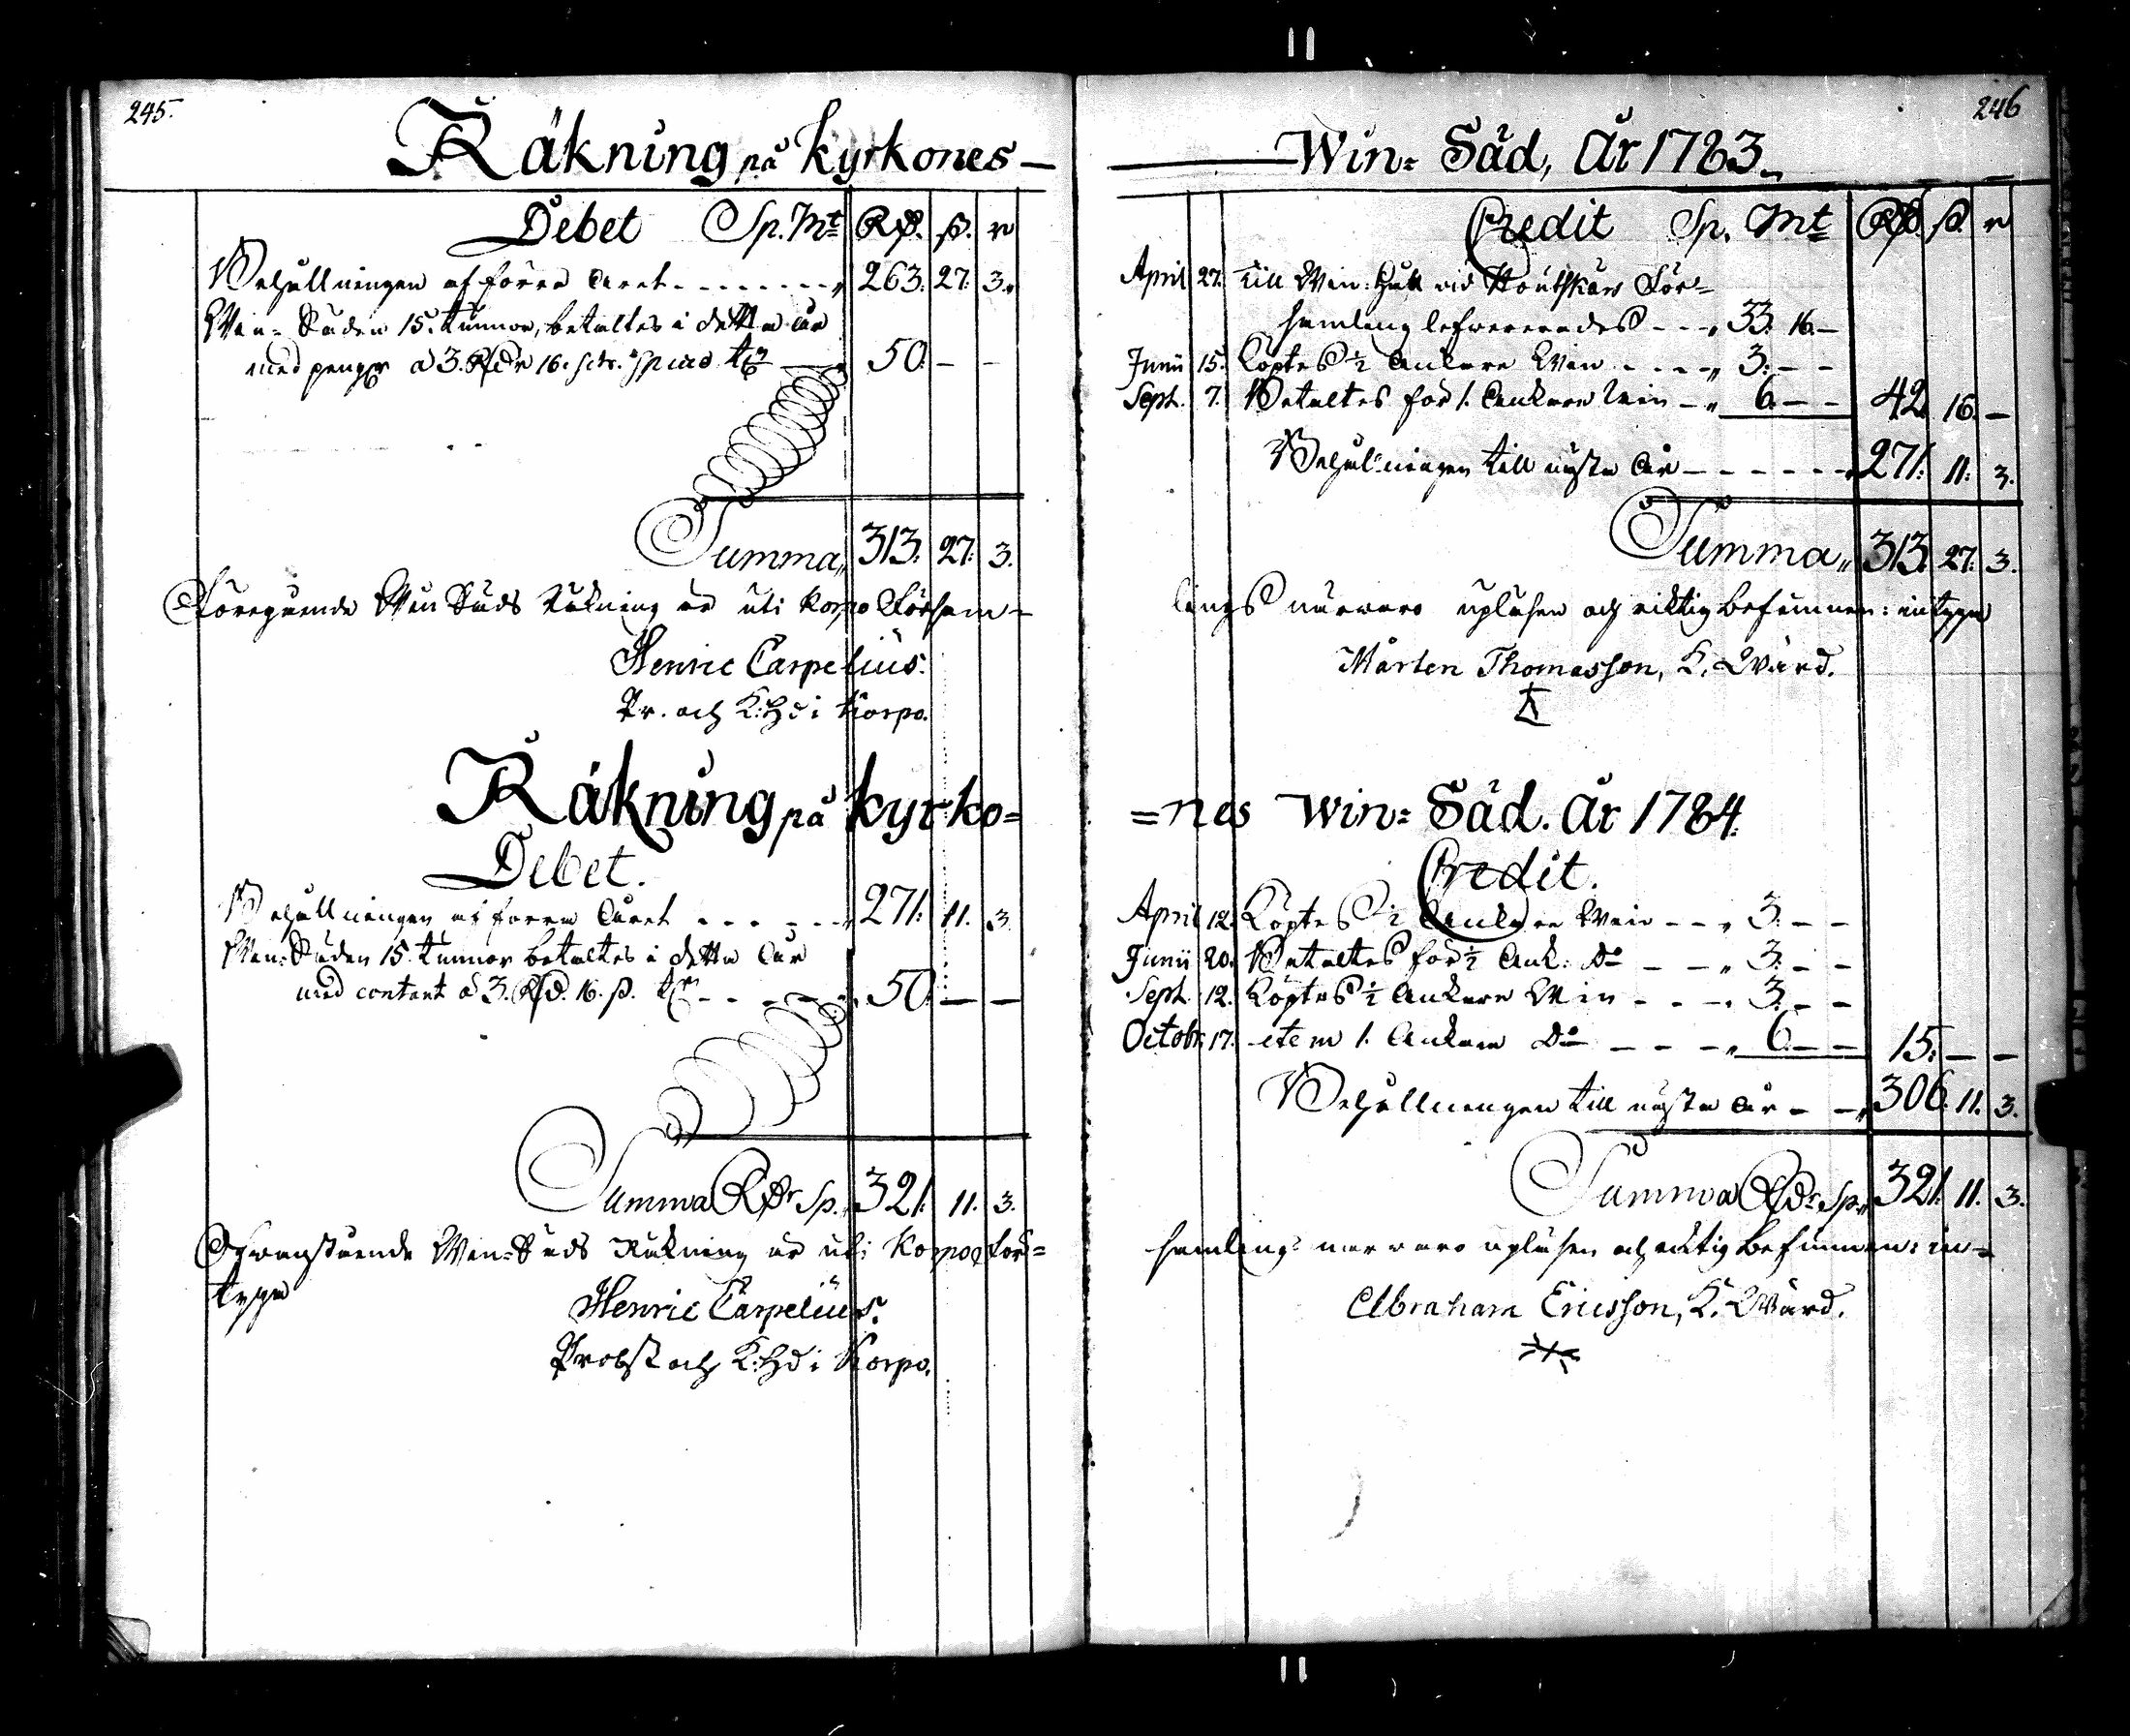 245.
Räkning på Kyrkones
Debet Sp. Mt Rd. ß. r
Behållningen af förra Året 263. 27. 3.
Win-Säden 15. tunnor, betaltes i detta år
med pengar à 3. Rdr 16. sch. Specie tn 50. - -
Summa 313. 27. 3.
Föregående Win Säds Räkning är uti Korpo Försam-
Henric Carpelius.
Pr. och K:Hd i Korpo.
Räkning på Kyrko=
Debet.
Behållningen af förra Året 271. 11. 3.
Win-Säden 15. tunnor betaltes i detta År
med contant à 3. Rd. 16. ß. tn 50. - -
Summa Rdr Sp. 321. 11. 3.
Ofvanstående Win-Säds Räkning är uti Korpo För=
tyga
Henric Carpelius.
Probst och K:Hd i Korpo.
246
Win= Säd, År 1783.
Credit Sp. Mt Rd. ß. r
April 27. Till Win: hjelp vid Houtskärs För=
samling lefvererades 33. 16. -
Junii 15. Köptes ½ Ankare Win 3. - -
Sept. 7. Betaltes för 1. Ankare Win 6. - - 42. 16. -
Behållningen till nästa År 271. 11. 3.
Summa 313. 27. 3.
lings närvaro upläsen och riktig befunnen: intyga
Mårten Thomasson, K. Wärd.
=nes Win= Säd. År 1784.
Credit.
April 12. Köptes ½ Ankare Win 3. - -
Junii 20. Betaltes för ½ Ank: Do 3. - -
Sept. 12. Köptes ½ Ankare Win 3. - -
Octobr. 17. item 1. Ankare Do 6. - - 15. - -
Behållningen till nästa År 306. 11. 3.
Summa Rdr Sp. 321. 11. 3.
samlings närvaro upläsen och riktig befunnen: in=
Abraham Ericsson, K. Wärd.